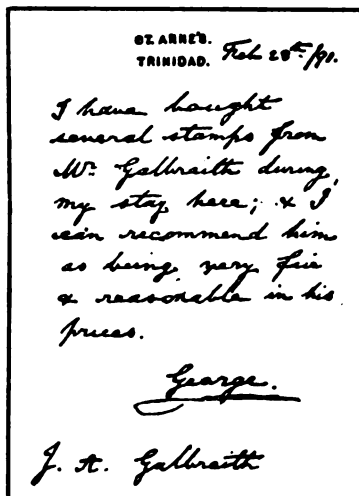 ST. ANNE'S.
TRINIDAD. Feb 28th/91.
I have bought
several stamps from
Mr. Galbraith during
my stay here; & I
can recommend him
as being very fair
& reasonable in his
prices.
George.
J. A. Galbraith